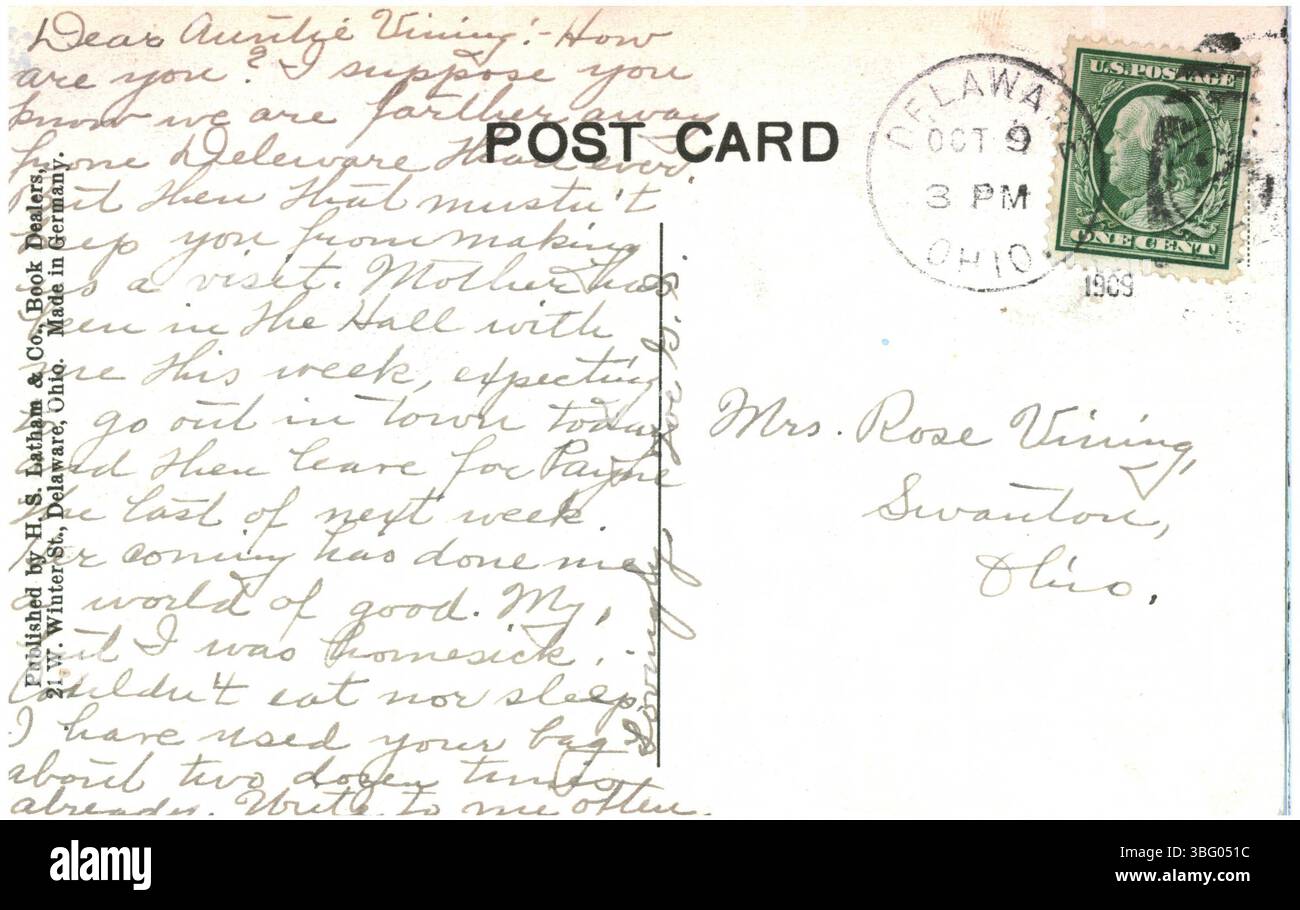 Dear Auntie Vining:- How
are you? I suppose you
know we are farther away
from Deleware than ever
but then that mustn't
keep you from making
us a visit. Mother has
been in the Hall with
me this week, expecting
to go out in town today
and then leave for Payne
the last of next week.
Her coming has done me
a world of good. My,
but I was homesick,
Couldn't eat nor sleep.
I have used your bag
about two dozen times
already. Write to me often.
Lovingly
Published by H. S. Latham & Co., Book Dealers,
21 W. Winter St., Delaware, Ohio. Made in Germany.
POST CARD
DELAWARE
OCT 9
3 PM
OHIO
1909
U.S. POSTAGE
ONE CENT
Mrs. Rose Vining,
Swanton,
Ohio.
alamy
Image ID: 3BG051C
www.alamy.com